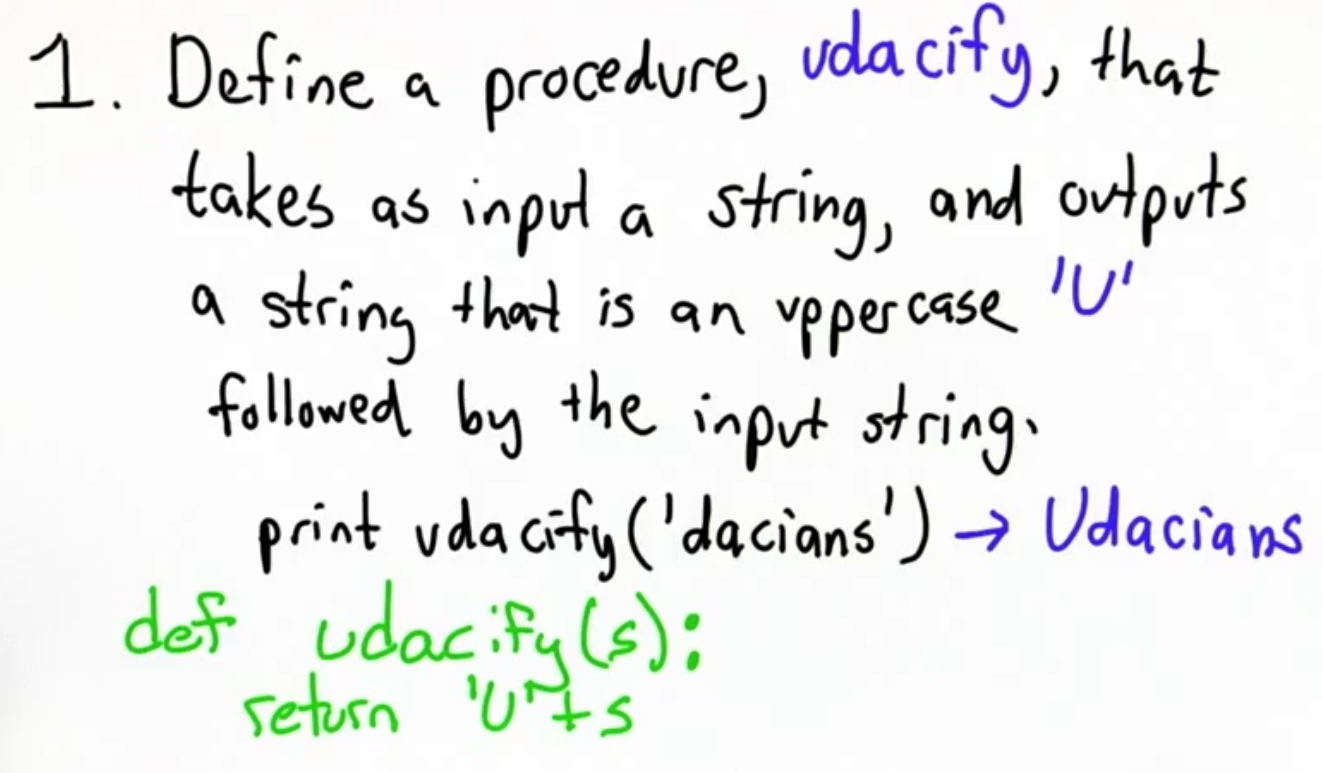 1. Define a procedure, udacify, that
takes as input a string, and outputs
a string that is an uppercase 'U'
followed by the input string.
print udacify('dacians') → Udacians
def udacify(s):
return 'U'+s